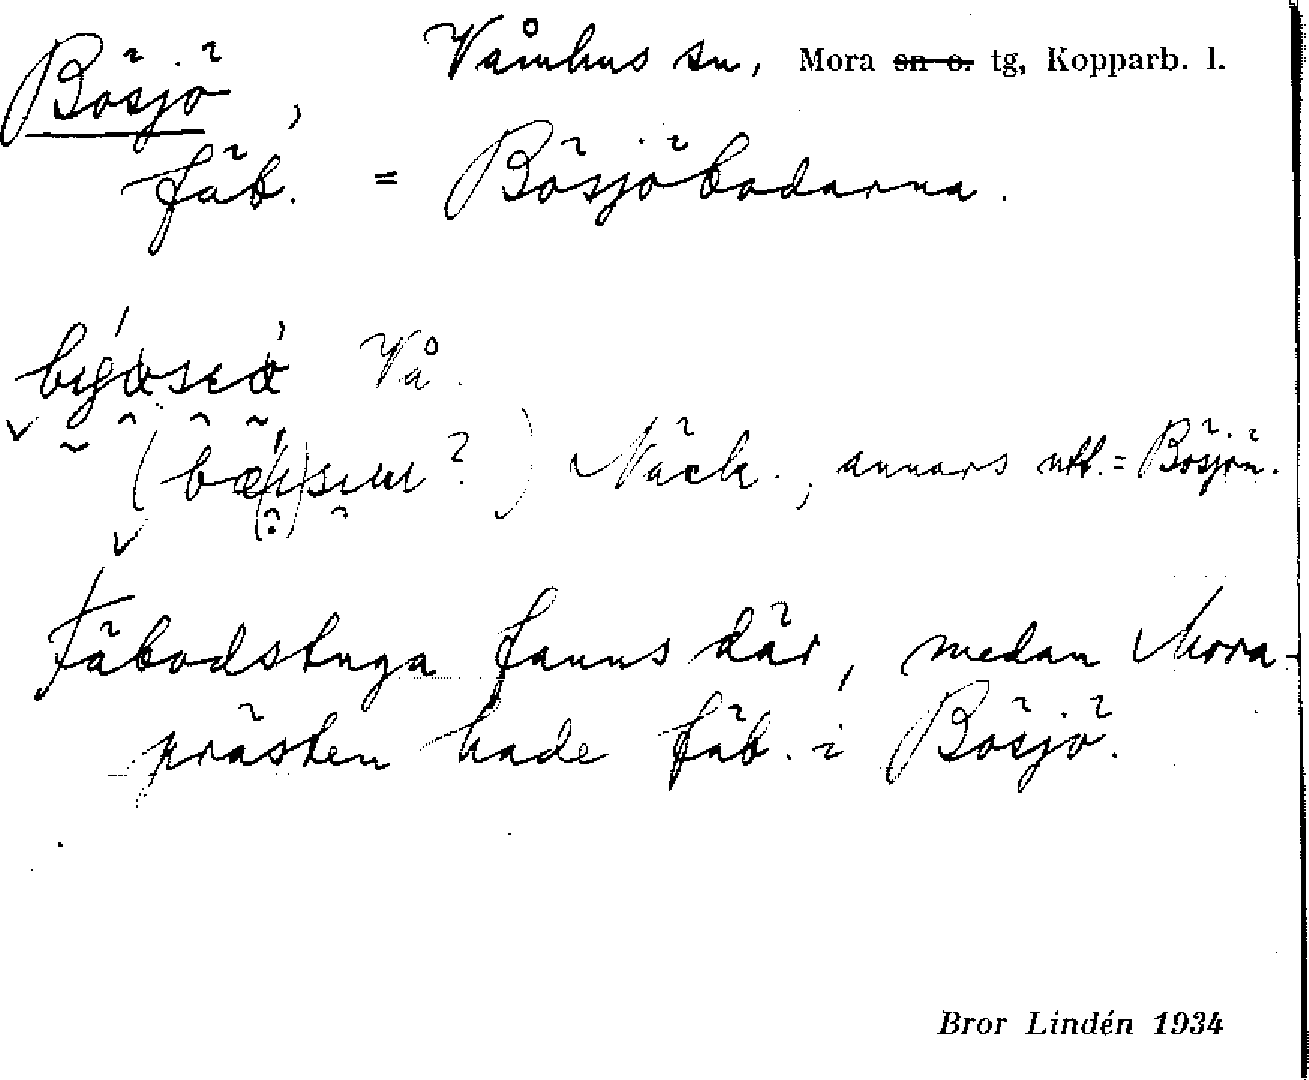 Bösjö, Våmhus sn, Mora sn o. tg, Kopparb. l.
fäb. = Bösjöbodarna.
Vå.
Näck., annars utt. = Bösjön.
Fäbodstuga fanns där, medan Mora-
prästen hade fäb. i Bösjö.
Bror Lindén 1934